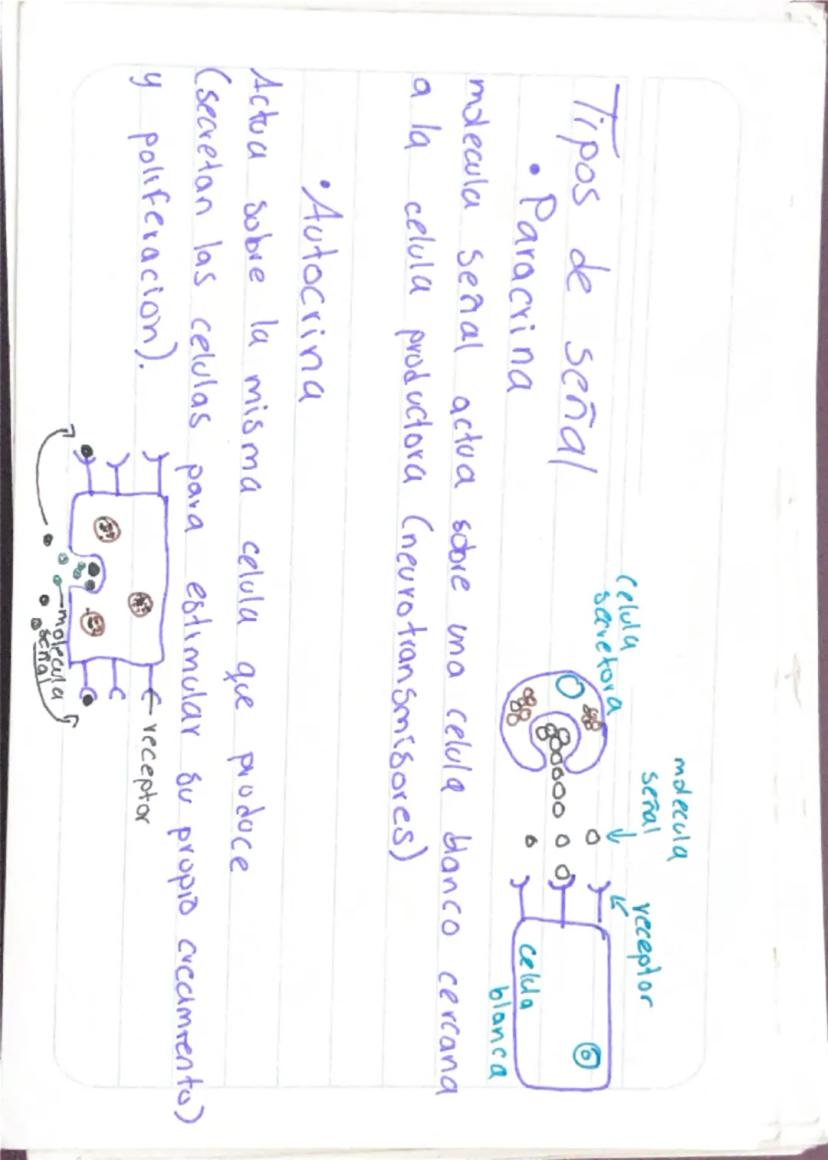 Tipos de señal
• Paracrina
celula
secretora
molecula
señal
receptor
celula
blanca
molecula señal actua sobre una celula blanco cercana
a la celula productora (neurotransmisores)
• Autocrina
Actua sobre la misma celula que produce
(secretan las celulas para estimular su propio crecimiento)
y poliferacion).
receptor
molecula
señal